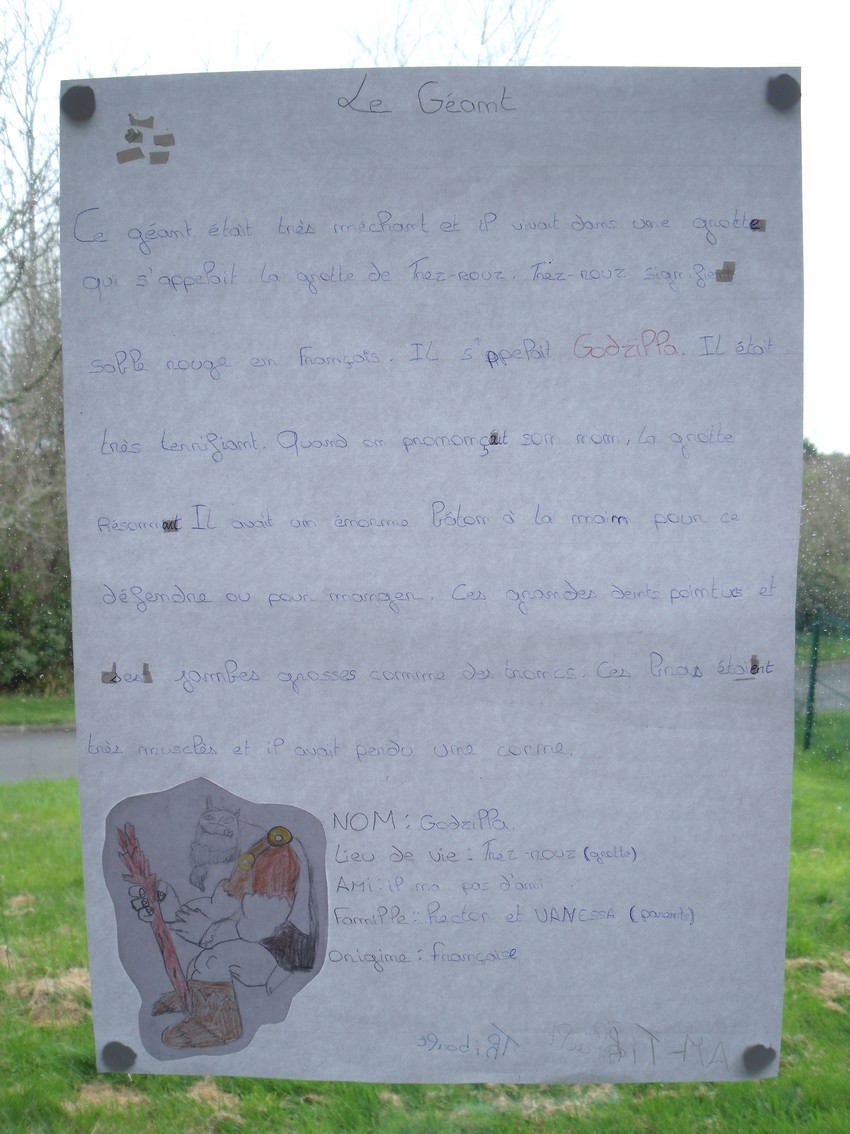 Le Géant
Ce géant était très méchant et il vivait dans une grotte
qui s'appelait la grotte de Trez-rouz. Trez-rouz signifie
sable rouge en français. IL s'appelait Godzilla. IL était
très terrifiant. Quand on prononçait son nom, la grotte
Résonnait IL avait un énorme bâton à la main pour ce
défendre ou pour manger. Ces grandes dents pointues et
ses jambes grosses comme des troncs. Ces bras étaient
très musclés et il avait perdu une corne.
NOM : Godzilla
Lieu de vie : Trez-rouz (grotte)
AMI : il na pas d'ami
Famille : hector et VANESSA (parents)
Origine : française